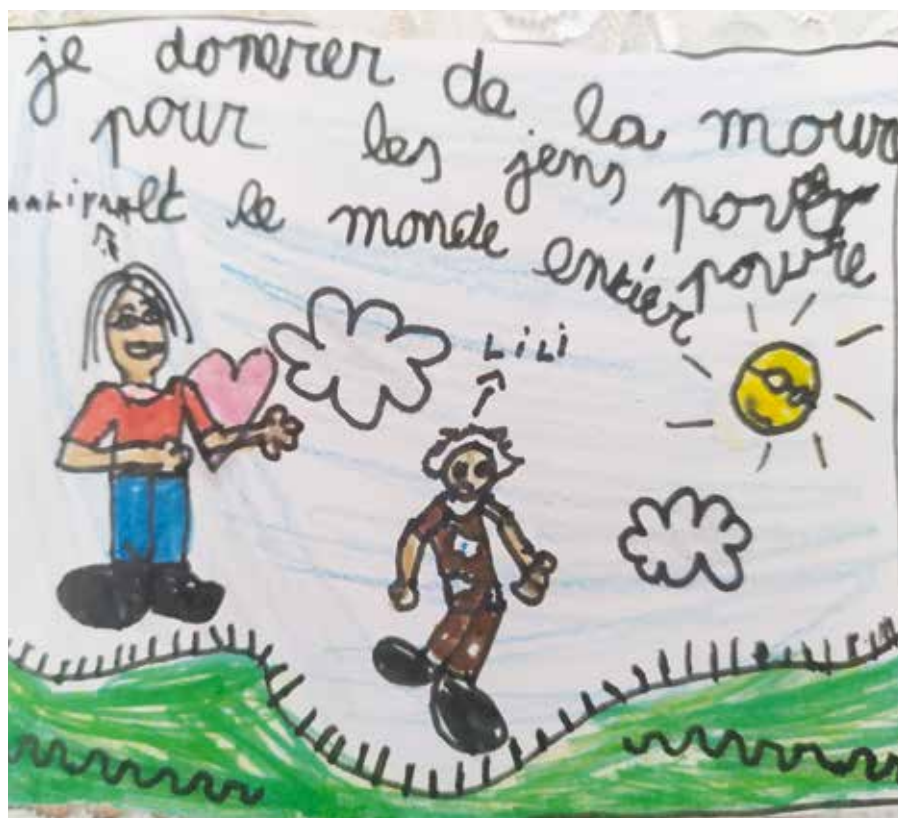 je donerer de la mour
pour les jens
et le monde entier povrre
LiLi